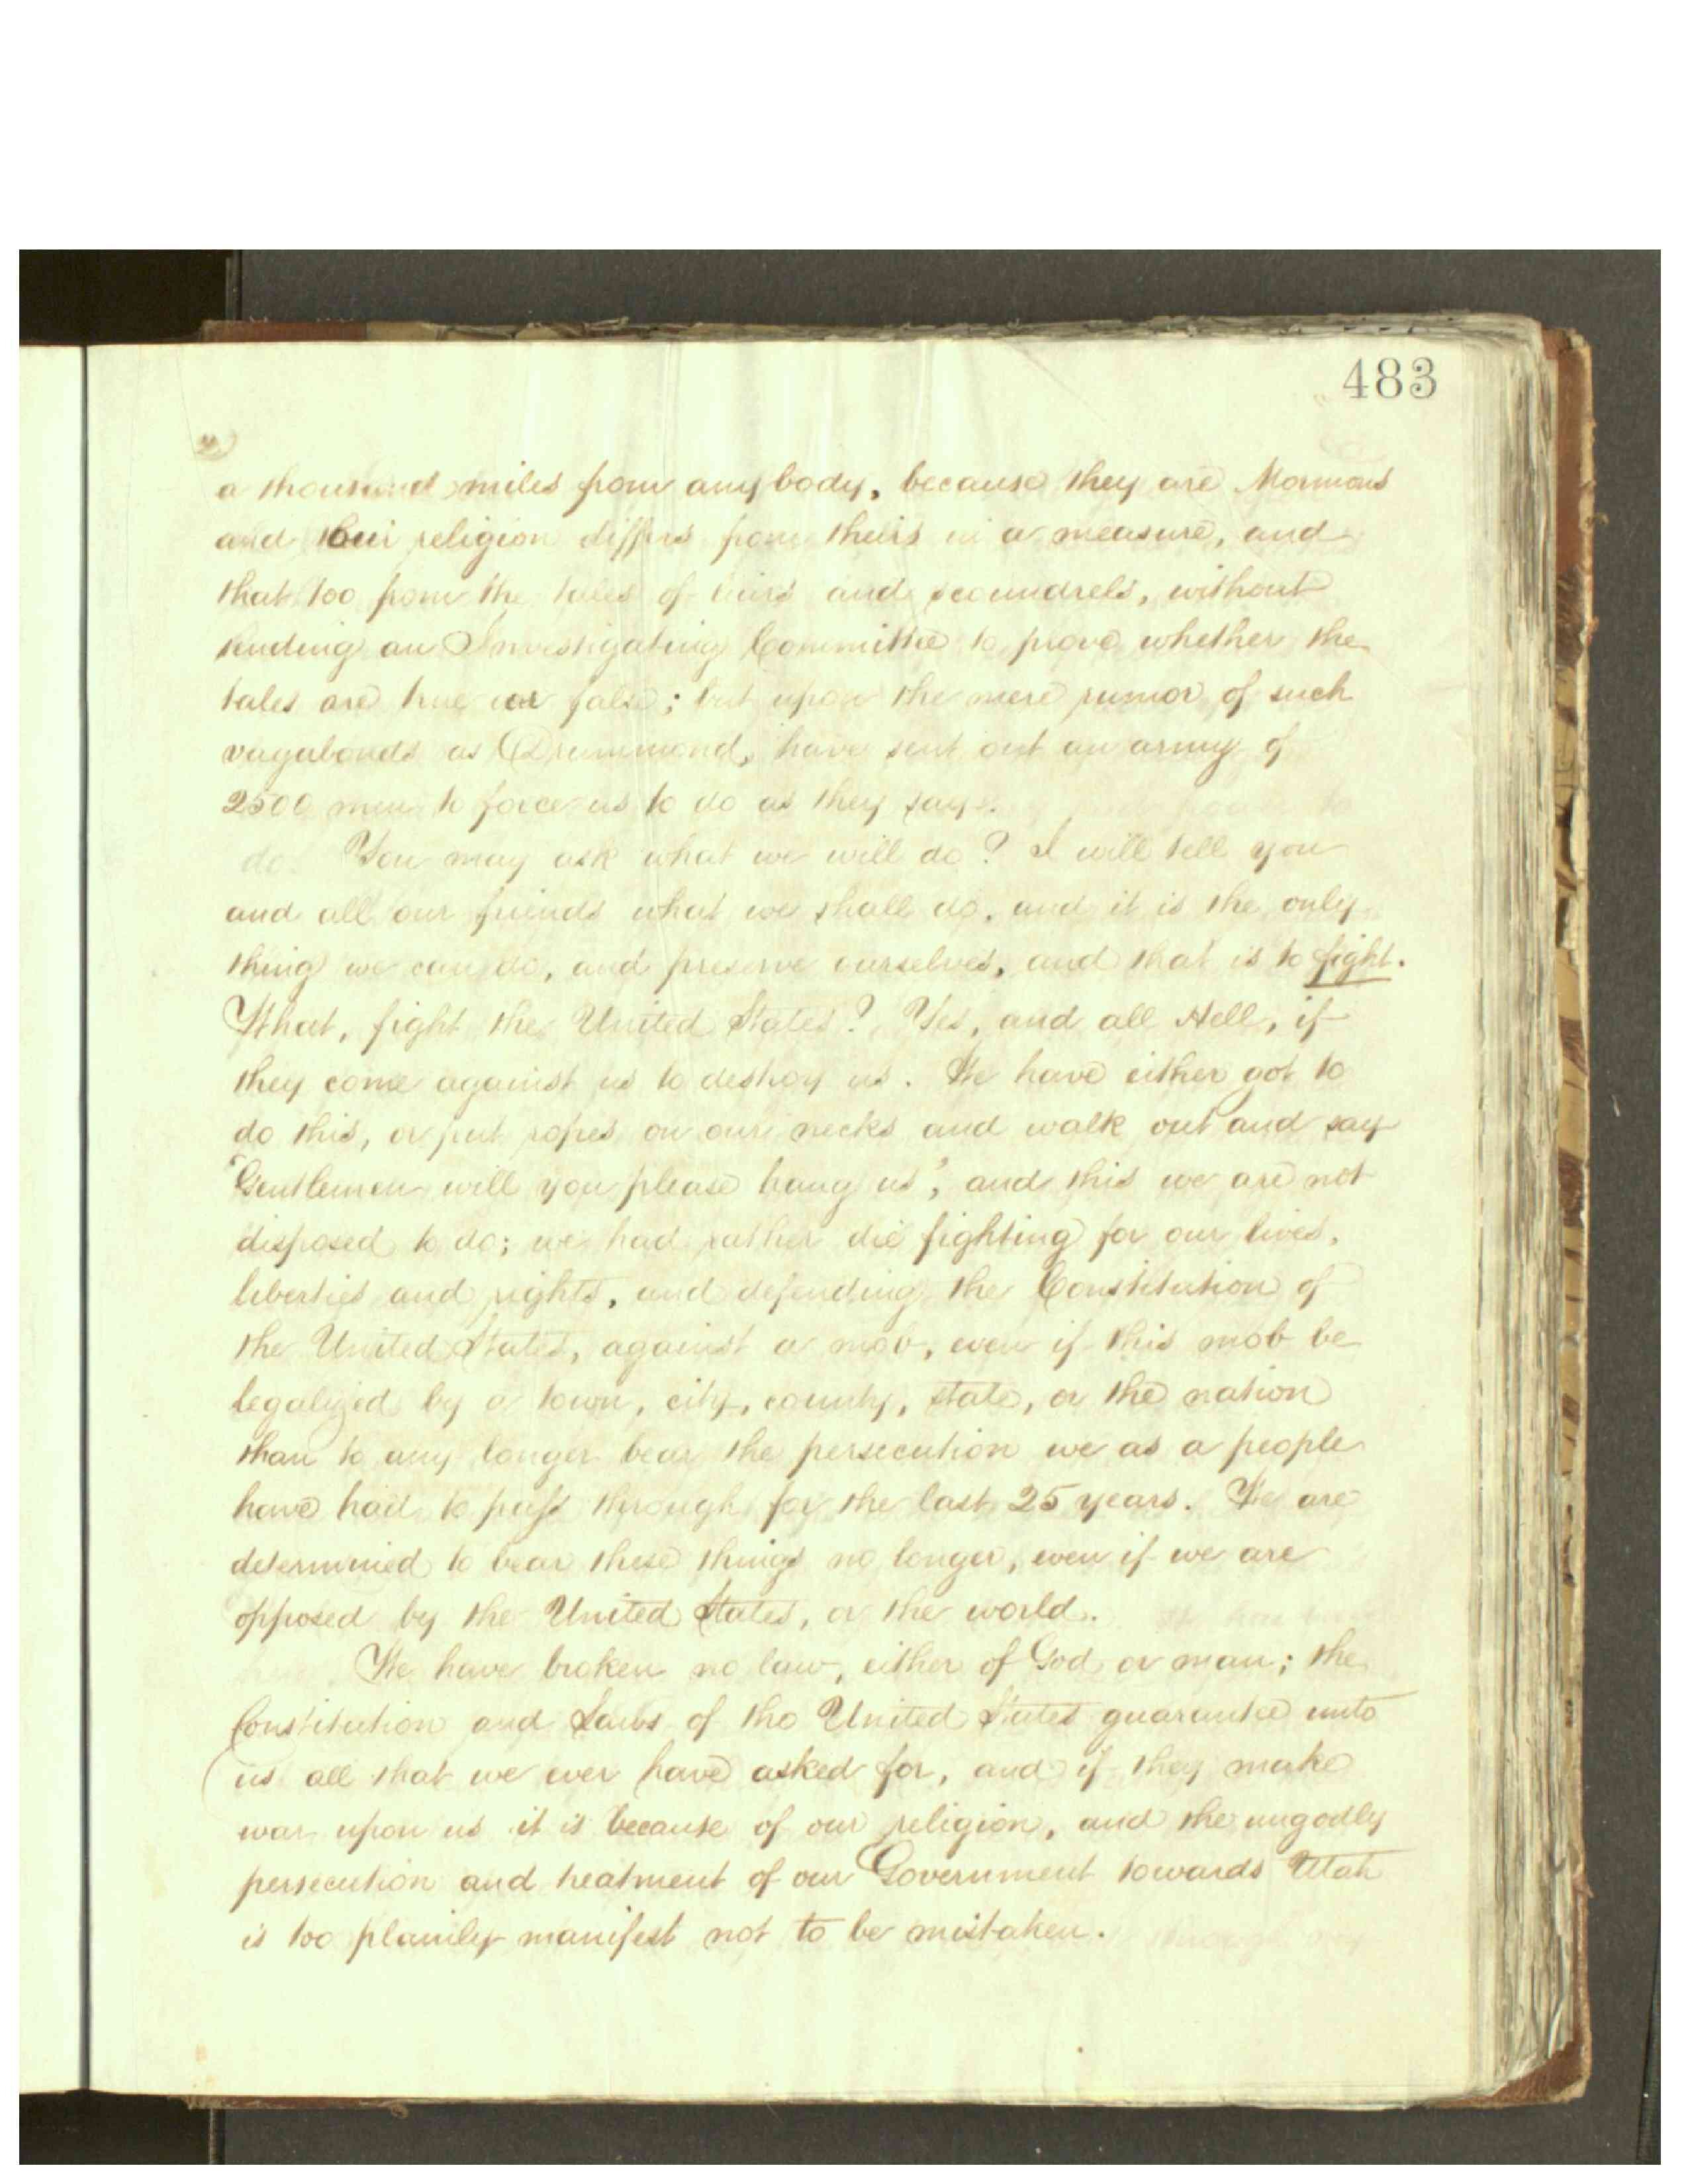 483
a thousand miles from any body, because they are Mormons
and their religion differs from theirs in a measure, and
that too from the tales of liars and scoundrels, without
sending an Investigating Committee to prove whether the
tales are true or false; but upon the mere rumor of such
vagabonds as Drummond, have sent out an army of
2500 men to force us to do as they say.
You may ask what we will do? I will tell you
and all our friends what we shall do, and it is the only
thing we can do, and preserve ourselves, and that is to fight.
What, fight the United States? Yes, and all Hell, if
they come against us to destroy us. We have either got to
do this, or put ropes on our necks and walk out and say
'Gentlemen will you please hang us', and this we are not
disposed to do; we had rather die fighting for our lives,
liberties and rights, and defending the Constitution of
the United States, against a mob, even if this mob be
legalized by a town, city, county, state, or the nation
than to any longer bear the persecution we as a people
have had to pass through for the last 25 years. We are
determined to bear these things no longer, even if we are
opposed by the United States, or the world.
We have broken no law, either of God or man; the
Constitution and Laws of the United States guarantee unto
us all that we ever have asked for, and if they make
war upon us it is because of our religion, and the ungodly
persecution and treatment of our Government towards Utah
is too plainly manifest not to be mistaken.